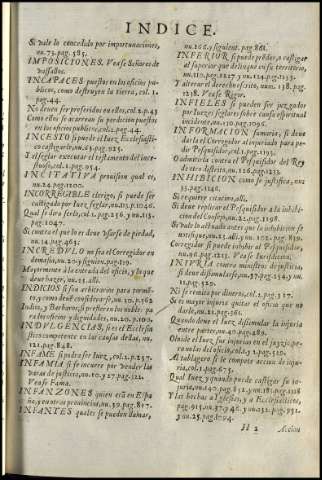 INDICE.
Si vale lo concedido por importunaciones,
nu.75.pag.585.
IMPOSICIONES. Vease Señores de
vassallos.
INCAPACES puestos en los oficios publicos,
como destruyen la tierra, col. 1.
pag.44.
No deuen ser preferidos en ellos, col.2.p.43
Como estos se acarrean su perdicion puestos
en los oficios publicos, col.2. pag.44.
INCESTO si puede el Juez Ecclesiastico
castigarlo, nu.63.pag.925.
Y el seglar executar el testamento del incestuoso,
col.1.pag.954.
INCITATIVA prouision qual es,
nu.24.pag.1200.
INCORREGIBLE clerigo, si puede ser
castigado por Juez seglar, nu.113.p.1046.
Qual se dira serlo, col.2.pag.256. y nu.113.
pag.1047.
Si contra el que lo es deue vsarse de piedad,
nu.14.pag.463.
INCREDVLO no sea el Corregidor en
demasia, nu.20.y siguien.pag.119.
Mayormente à la entrada del oficio, y lo que
deue hazer, nu.21.alli.
INDICIOS si son arbitrarios para tormento,
y como deue considerarse, nu.150.p.962
Indio, y Barbaro, si prefieren los nobles para
los oficios y dignidades, nu.20.pag.100.
INDVLGENCIAS, si es el Ecclesiastico
competente en las causas dellas, nu.
121.pag.848.
INFAME si podra ser Juez, col.2.p.237.
INFAMIA si se incurre por vender las
varas de justicia, nu.10.y 27.pag.121.
Vease Fama.
INFANZONES quien era en España,
y en otras prouincias, nu.50.pag.817.
INFANTES quales se pueden llamar,
nu.166.y siguient. pag.861.
INFERIOR si puede prender, o castigar
al superior que delinque en su territorio,
nu.110.pag.1227.y nu.124.pag.1233.
Y alterar el derecho escrito, num. 138. pag.
1238. Vease Reyes.
INFIELES si pueden ser juzgados
por Juezes seglares sobre causa espiritual
incidente, nu.150.pag.1096.
INFORMACION sumaria, si deue
darla el Corregidor al agrauiado para pedir
Pesquisidor, col.1.pag.1213.
O admitirla contra el Pesquisidor del Rey
de otro distrito, nu.126.pag.1233.
INHIBICION como se justifica, nu.2
pag.1246.
Si requiere citacion, alli.
Si deue replicar el Pesquisidor a la inhibicion
del Consejo, nu.22.pag.1198.
Si vale lo actuado antes que la inhibicion se
notifique, nu.21.alli, y nu. 102. pag. 839.
Corregidor si puede inhibir al Pesquisidor,
nu.96.pag.1221. Vease Jurisdicion.
INIVRIA contra ministros de justicia,
si deue dissimularse, nu.37.pag.154. y nu.
21.pag.529.
Ni se remita por dinero, col.2.pag.317.
Si es mayor injuria quitar el oficio que no
darle, nu.21.pag.261.
Quando deue el Juez dissimular la injuria
entre partes, nu.40.pag.489.
Oluide el Juez sus injurias en el juyzio personal
del oficio, col.1.pag.529.
Al tablagero si le compete accion de injuria,
col.1.pag.673.
Qual Juez, y quando puede castigar su injuria,
nu.140.pag.852. y nu.180.pag.866
Y las hechas a Yglesias, y a Ecclesiasticos,
pag.915.nu.37. y 46. y nu.132. pag. 931.
y nu.25.pag.894.
H 2
Accion